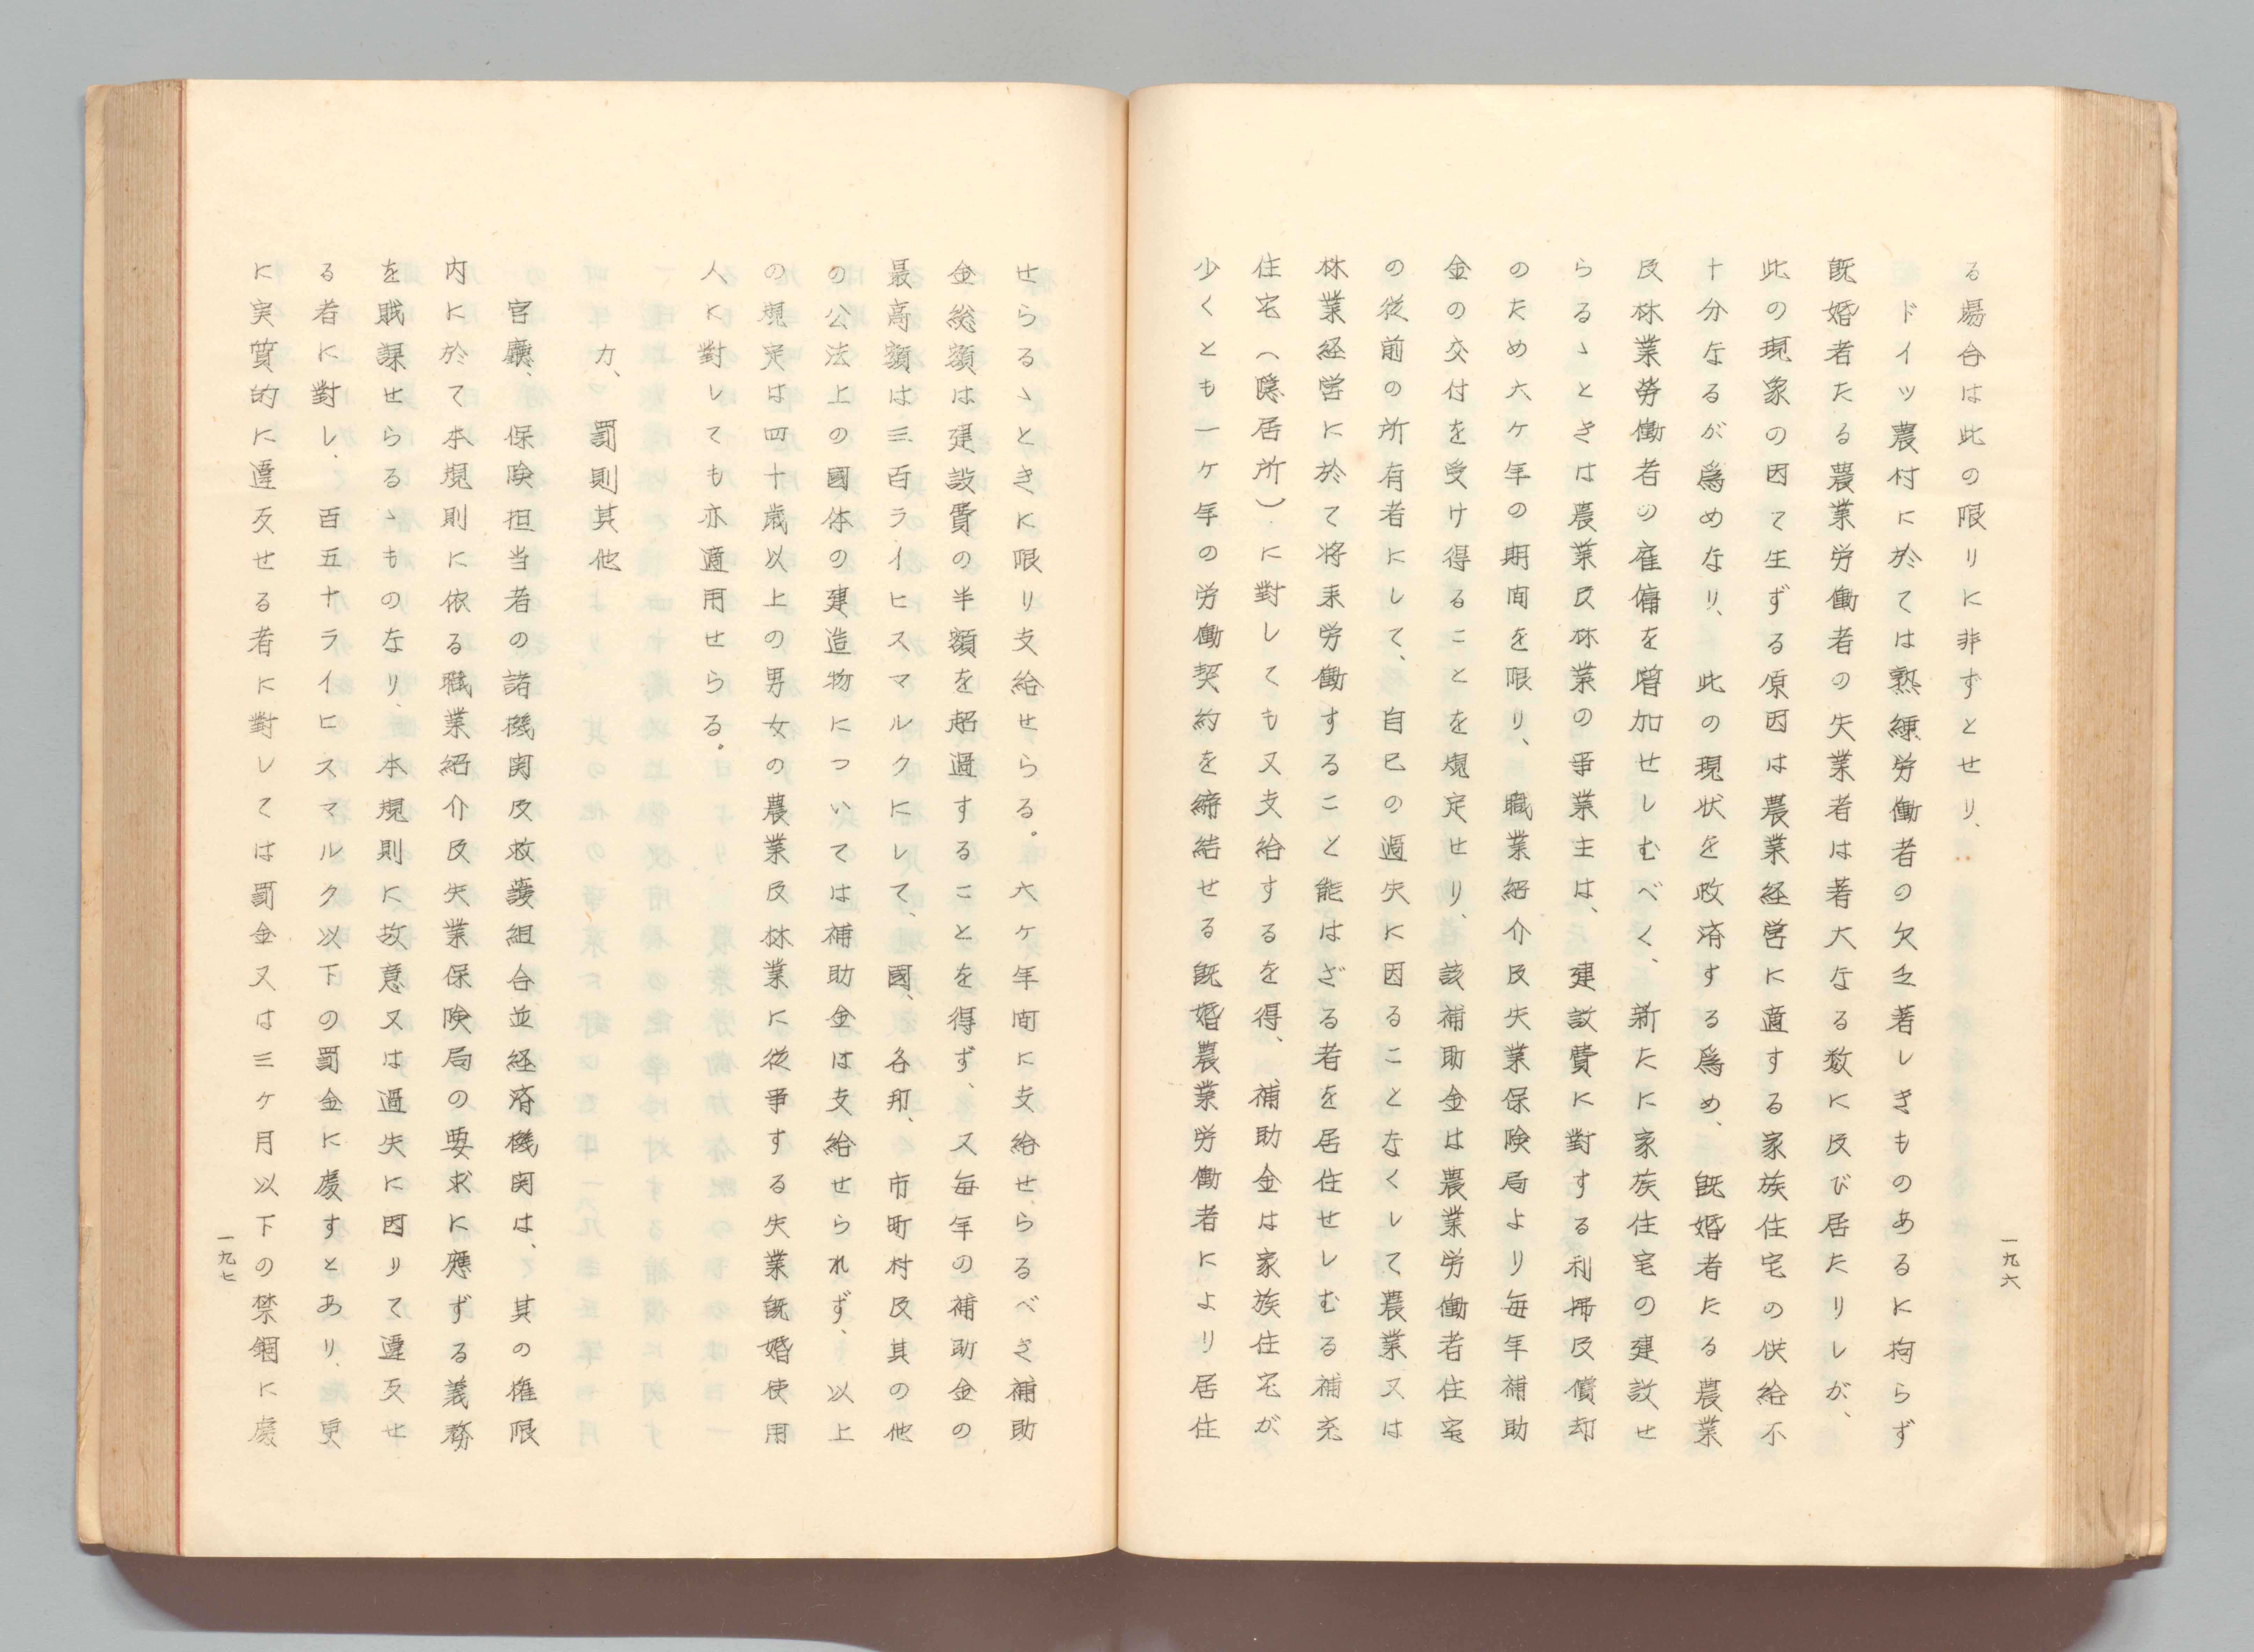 る場合は此の限りに非ずとせり、
ドイツ農村に於ては熟練労働者の欠乏著しきものあるに拘らず
既婚者たる農業労働者の失業者は著大なる数に及び居たりしが、
此の現象の因て生ずる原因は農業経営に適する家族住宅の供給不
十分なるが為めなり、此の現状を改済する為め、既婚者たる農業
及林業労働者の雇傭を増加せしむべく、新たに家族住宅の建設せ
らるゝときは農業及林業の事業主は、建設費に對する利拂及償却
のため六ケ年の期間を限り、職業紹介及失業保険局より毎年補助
金の交付を受け得ることを規定せり、該補助金は農業労働者住宅
の従前の所有者にして、自己の過失に因ることなくして農業又は
林業経営に於て将来労働すること能はざる者を居住せしむる補充
住宅（隠居所）に對しても又支給するを得、補助金は家族住宅が
少くとも一ケ年の労働契約を締結せる既婚農業労働者により居住
一九六
せらるゝときに限り支給せらる。六ケ年間に支給せらるべき補助
金総額は建設費の半額を超過することを得ず、又毎年の補助金の
最高額は三百ライヒスマルクにして、國、各邦、市町村及其の他
の公法上の國体の建造物については補助金は支給せられず、以上
の規定は四十歳以上の男女の農業及林業に従事する失業既婚使用
人に對しても亦適用せらる。
カ、罰則其他
官廳、保険担当者の諸機関及救護組合並経済機関は、其の権限
内に於て本規則に依る職業紹介及失業保険局の要求に應ずる義務
を賦課せらるゝものなり、本規則に故意又は過失に因りて違反せ
る者に對し、百五十ライヒスマルク以下の罰金に處すとあり、更
に実質的に違反せる者に對しては罰金又は三ケ月以下の禁錮に處
一九七